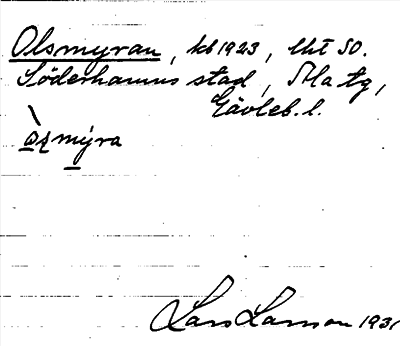 Olsmyran, kb 1923, lht SO.
Söderhamns stad, Ala tg,
Gävleb. l.
òʂmýra
Lars Larsson 1931